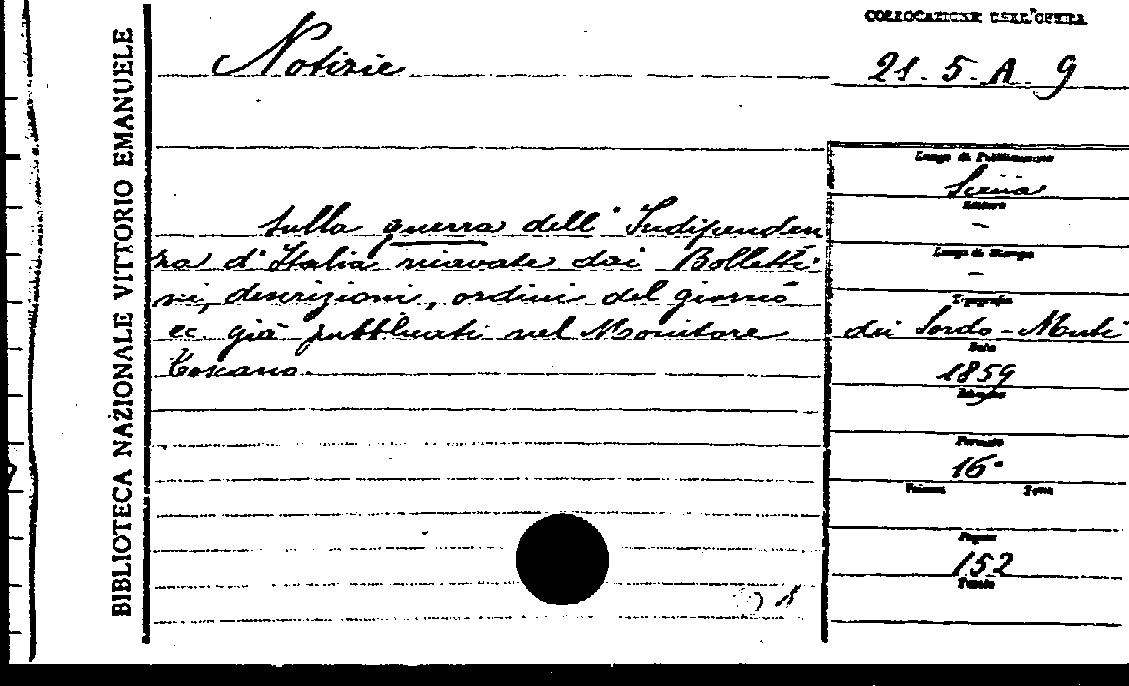 BIBLIOTECA NAZIONALE VITTORIO EMANUELE
COLLOCAZIONE DELL'OPERA
Notizie
21. 5. A. 9
Luogo di Pubblicazione
Siena
Editore
sulla guerra dell' Indipenden
za d'Italia ricavate dai Bolletti
Luogo di Stampa
ni, descrizioni, ordini del giorno
Tipografia
ec. già pubblicati nel Monitore
dei Sordo-Muti
Data
Toscano.
1859
Formato
16°
Volume Tomo
Pagine
152